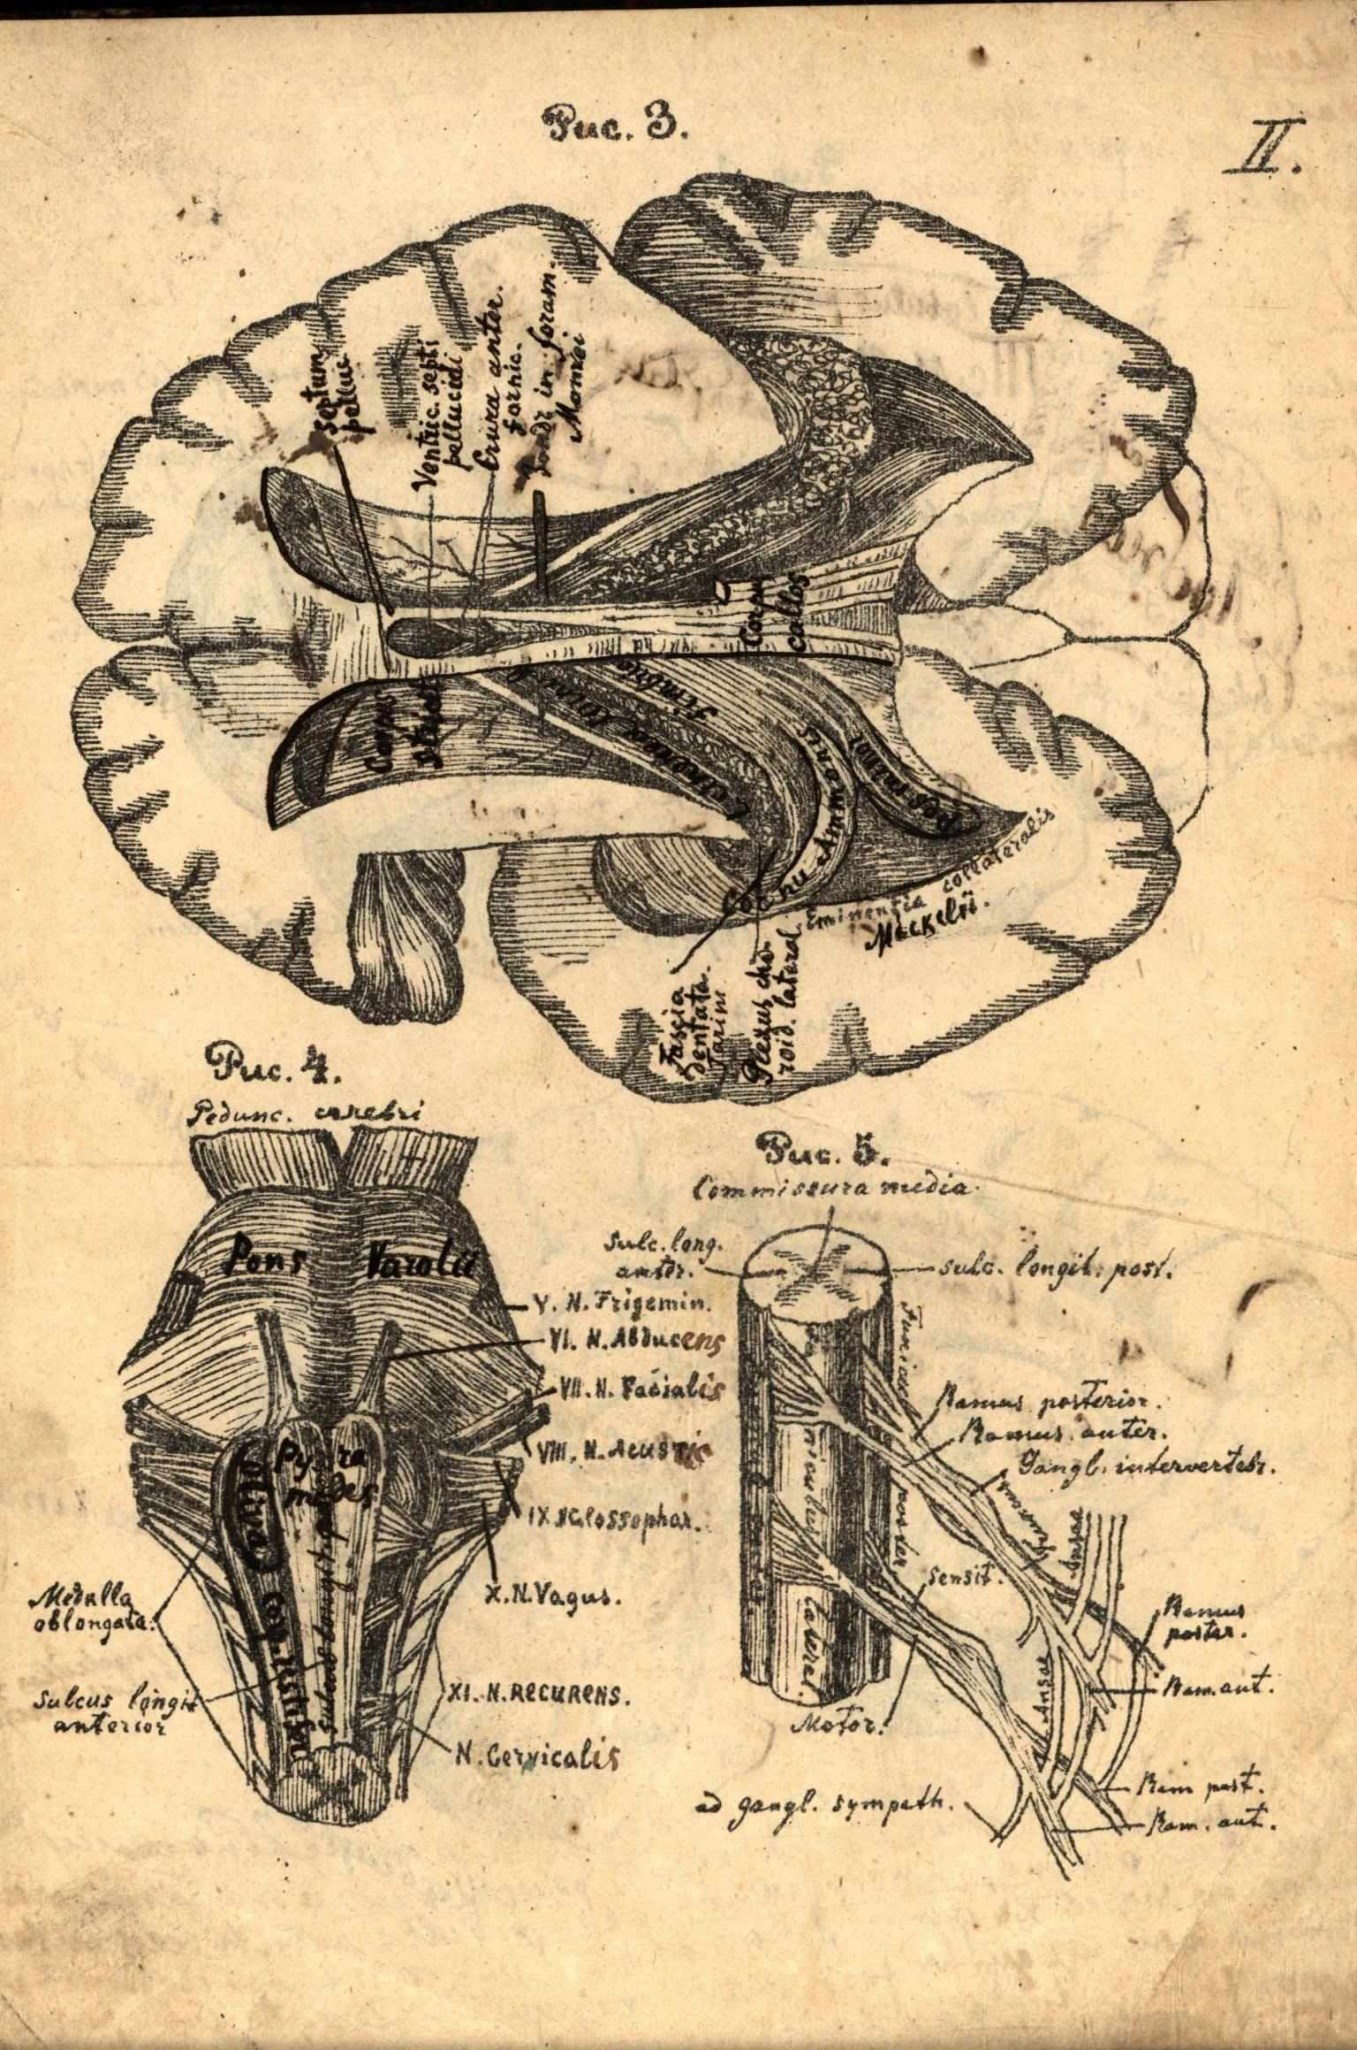 Рис. 3.
II.
septum
pelluc
Ventric. septi
pellucidi
Crura anter.
fornic.
Sonde in foram.
Monroi
Corpu
callos
Corpus
striat
Fimbria
Cornu Ammonis
Pes minor
Eminentia collateralis
Meckelii.
Fascia
dentata
Tarini
Plexus cho-
roid. lateral.
Рис. 4.
Pedunc. cerebri
Pons Varolii
V. N. Trigemin.
VI. N. Abducens
VII. N. Facialis
VIII. N. Acustic
IX N Glossophar.
X. N. Vagus.
XI. N. RECURENS.
N. Cervicalis
Pyra
mides
Oliva
Corp. restifor
Sulcus longit.
Medulla
oblongata.
Sulcus longit
anterior
Рис. 5.
Commissura media.
Sulc. long.
anter.
sulc. longit. post.
Funicul
poster
niculus
lateral.
Ramus posterior.
Ramus anter.
Gangl. intervertebr.
Truncus
Ansae
sensit.
Motor.
Ansae
Ramus
poster.
Ram. ant.
Ram post.
Ram. ant.
ad gangl. sympath.